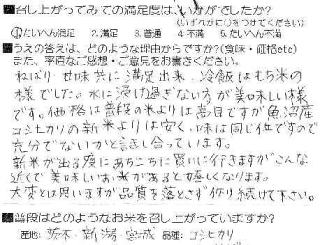 召し上がってみての満足度は、いかがでしたか?
(いずれかに○をつけてください)
1.たいへん満足 2.満足 3.普通 4.不満 5.たいへん不満
うえの答えは、どのような理由からですか?(食味・価格etc)
また、率直なご感想・ご意見をお書きください。
ねばり・甘味共に満足出来、冷飯はもち米の
様でした。水に浸け過ぎない方が美味しい様
です。価格は普段の米よりは高目ですが魚沼産
コシヒカリの新米よりは安く、味は同じ位ですので
充分でないかと話し合っています。
新米が出る度にあちこちに買いに行きますがこんな
近くで美味しいお米があると嬉しくなります。
大変とは思いますが品質を落とさず作り続けて下さい。
普段はどのようなお米を召し上がっていますか?
産地: 栃木・新潟・宮城 品種: コシヒカリ